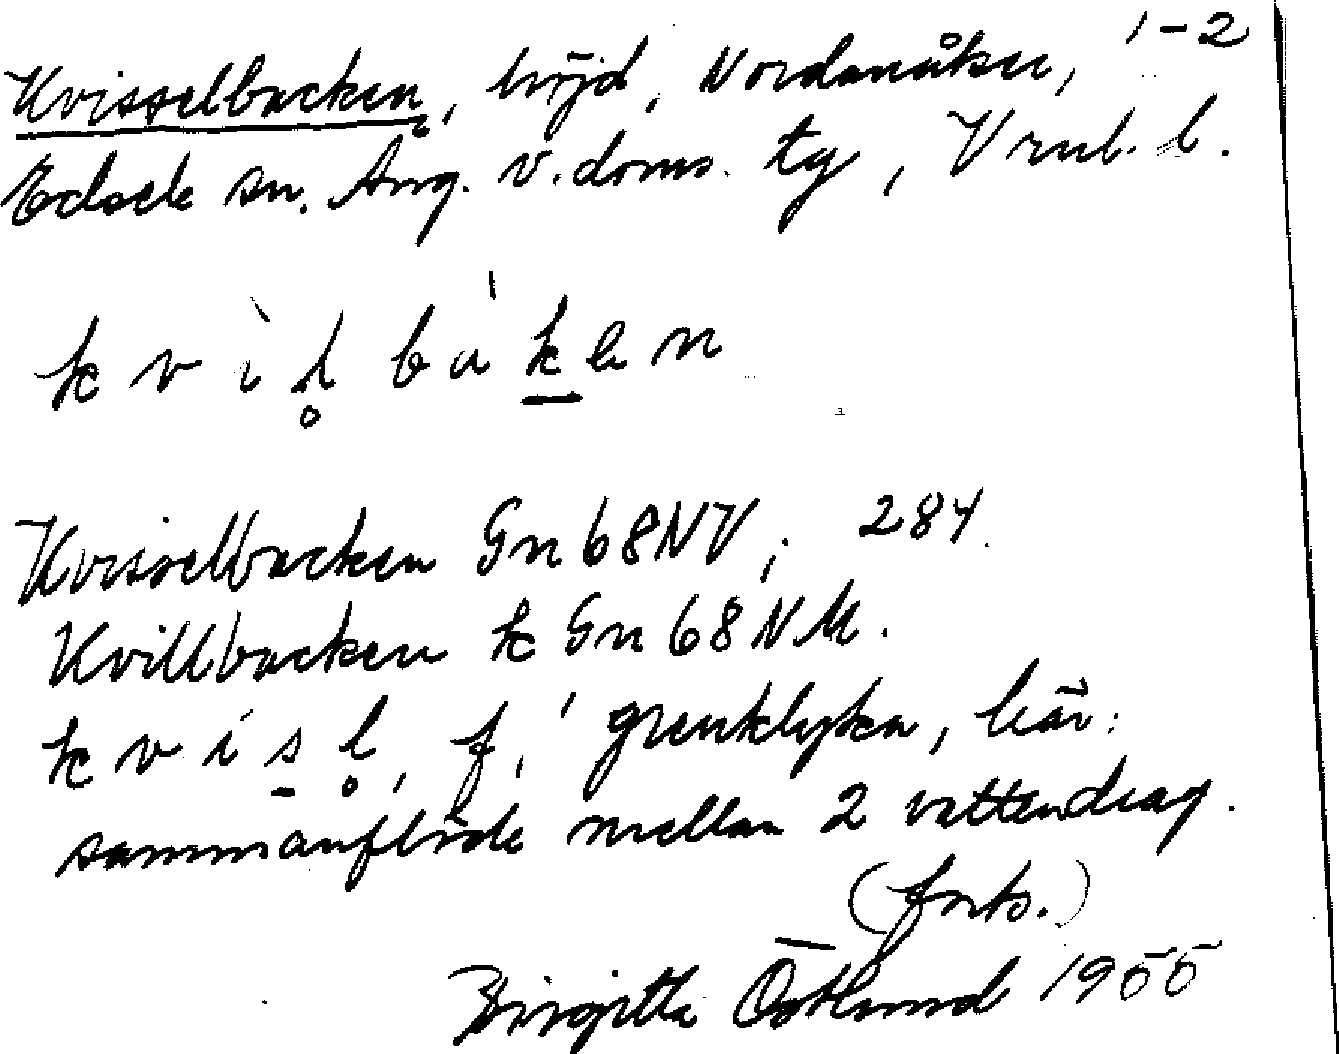 1-2
Kvisselbacken, höjd, Nordanåker,
Edsele sn. Ång. v. doms. tg, Vrml. l.
k v ì l̥ b a̍ k̠ e n
Kvisselbacken Gn 68 NV, 284.
Kvillbacken k Gn 68 NM.
k v i s̠ l̥, f, 'grenklyka, här:
sammanflöde mellan 2 vattendrag.
(forts.)
Birgitta Östlund 1955